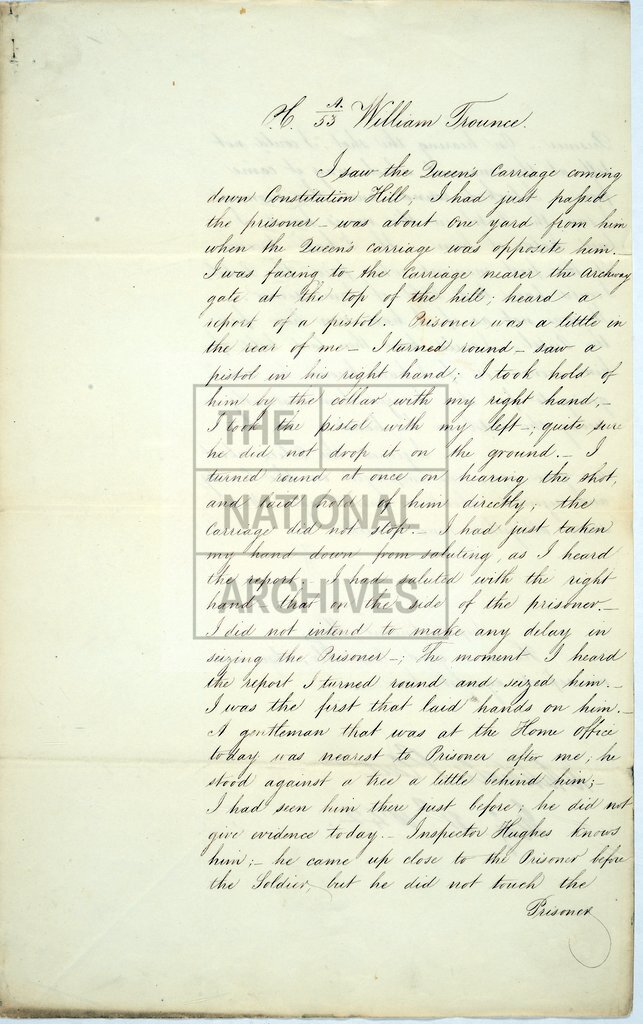 P.C. A. 53 William Trounce.
I saw the Queen's Carriage coming
down Constitution Hill; I had just passed
the prisoner – was about one yard from him
when the Queen's carriage was opposite him. –
I was facing to the Carriage nearer the Archway
gate at the top of the hill; heard a
report of a pistol. Prisoner was a little in
the rear of me – I turned round – saw a
pistol in his right hand; I took hold of
him by the collar with my right hand, –
I took the pistol with my left –; quite sure
he did not drop it on the ground. – I
turned round at once on hearing the shot,
and laid hold of him directly; the
Carriage did not stop. – I had just taken
my hand down from saluting, as I heard
the report, – I had saluted with the right
hand, that on the side of the prisoner. –
I did not intend to make any delay in
seizing the Prisoner –; The moment I heard
the report I turned round and seized him. –
I was the first that laid hands on him. –
A gentleman that was at the Home Office
today was nearest to Prisoner after me; he
stood against a tree a little behind him; –
I had seen him there just before; he did not
give evidence today. – Inspector Hughes knows
him; – he came up close to the Prisoner before
the Soldier, but he did not touch the
Prisoner
THE
NATIONAL
ARCHIVES